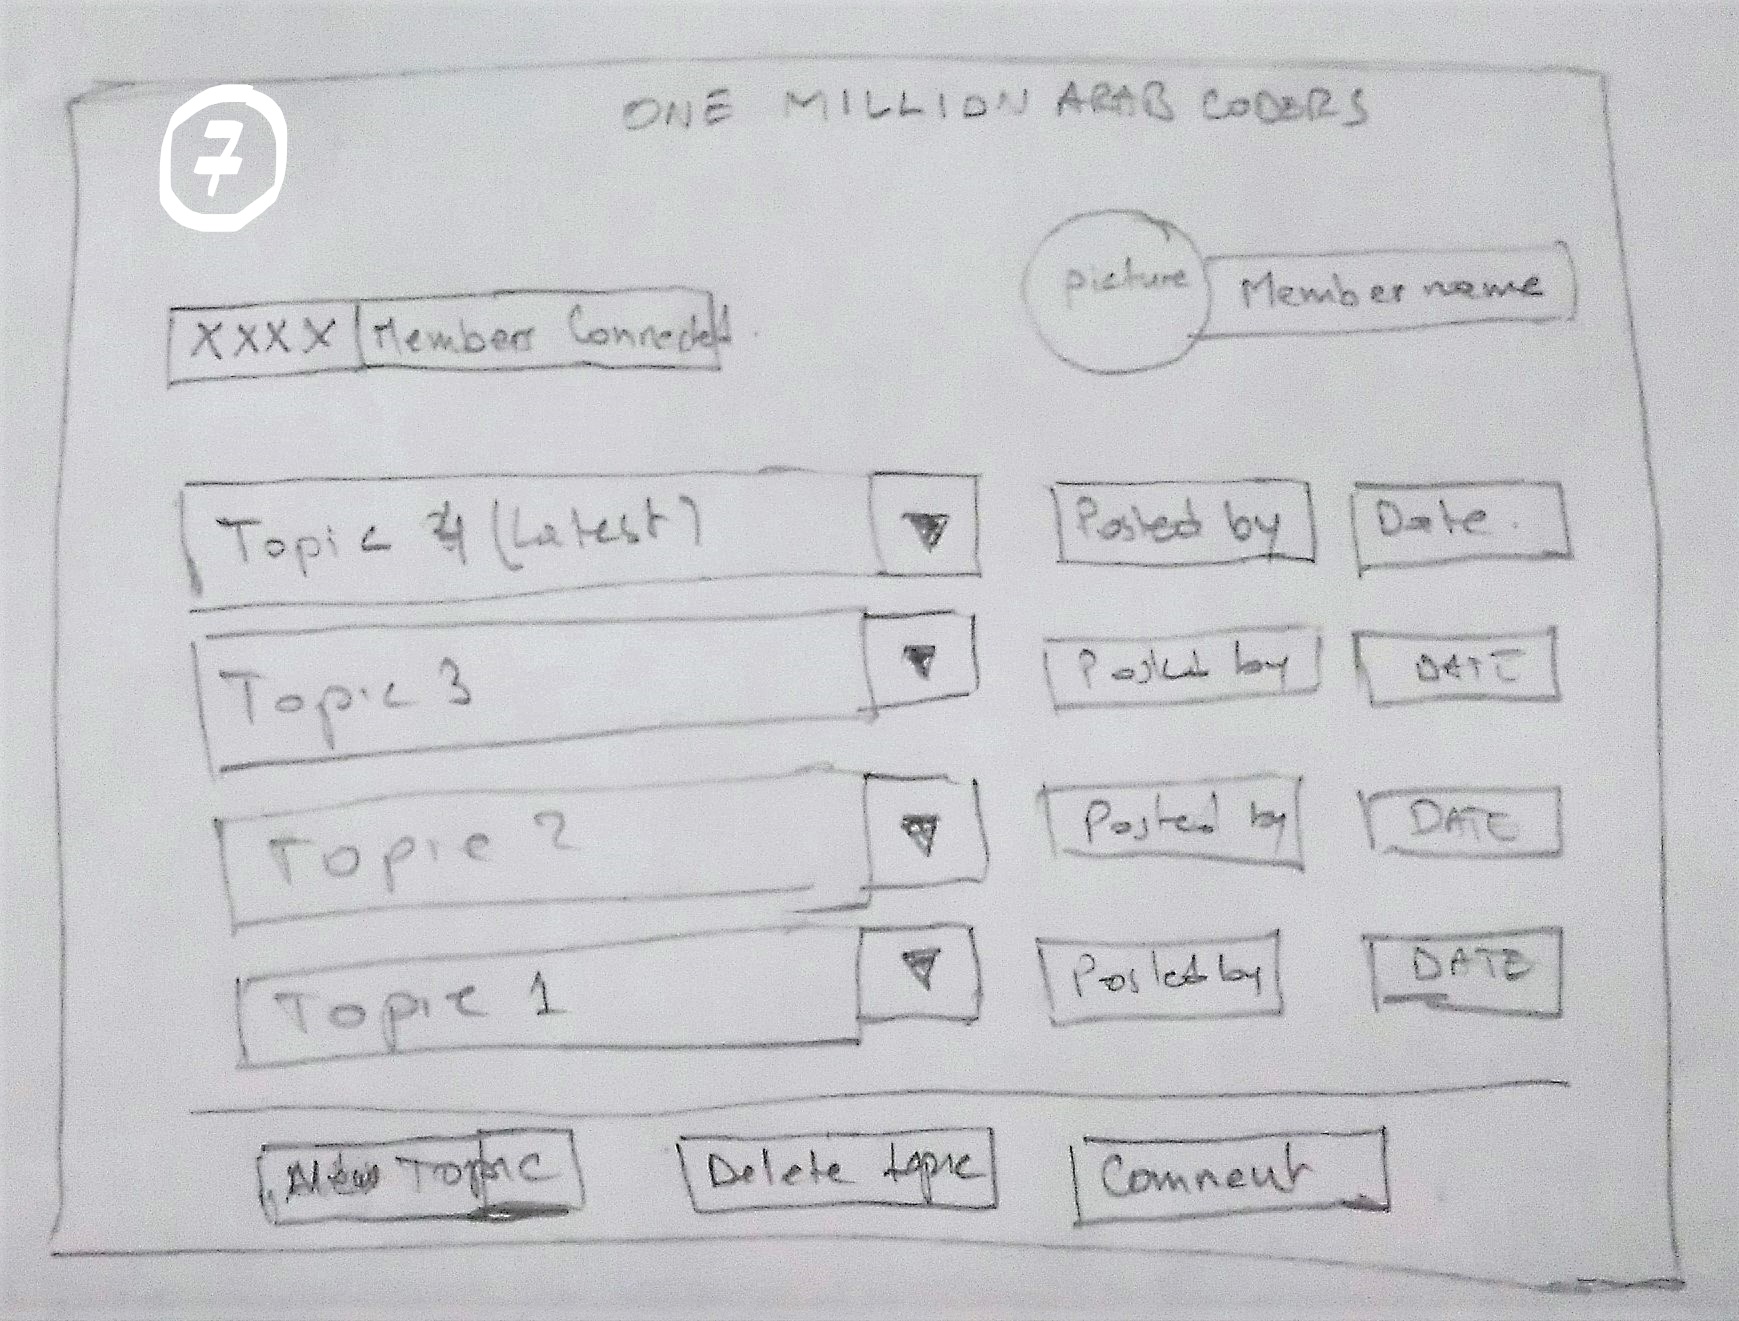 7
ONE MILLION ARAB CODERS
picture Member name
XXXX Members Connected.
Topic 4 (Latest) Posted by Date.
Topic 3 Posted by DATE
Topic 2 Posted by DATE
Topic 1 Posted by DATE
New Topic Delete topic Comment